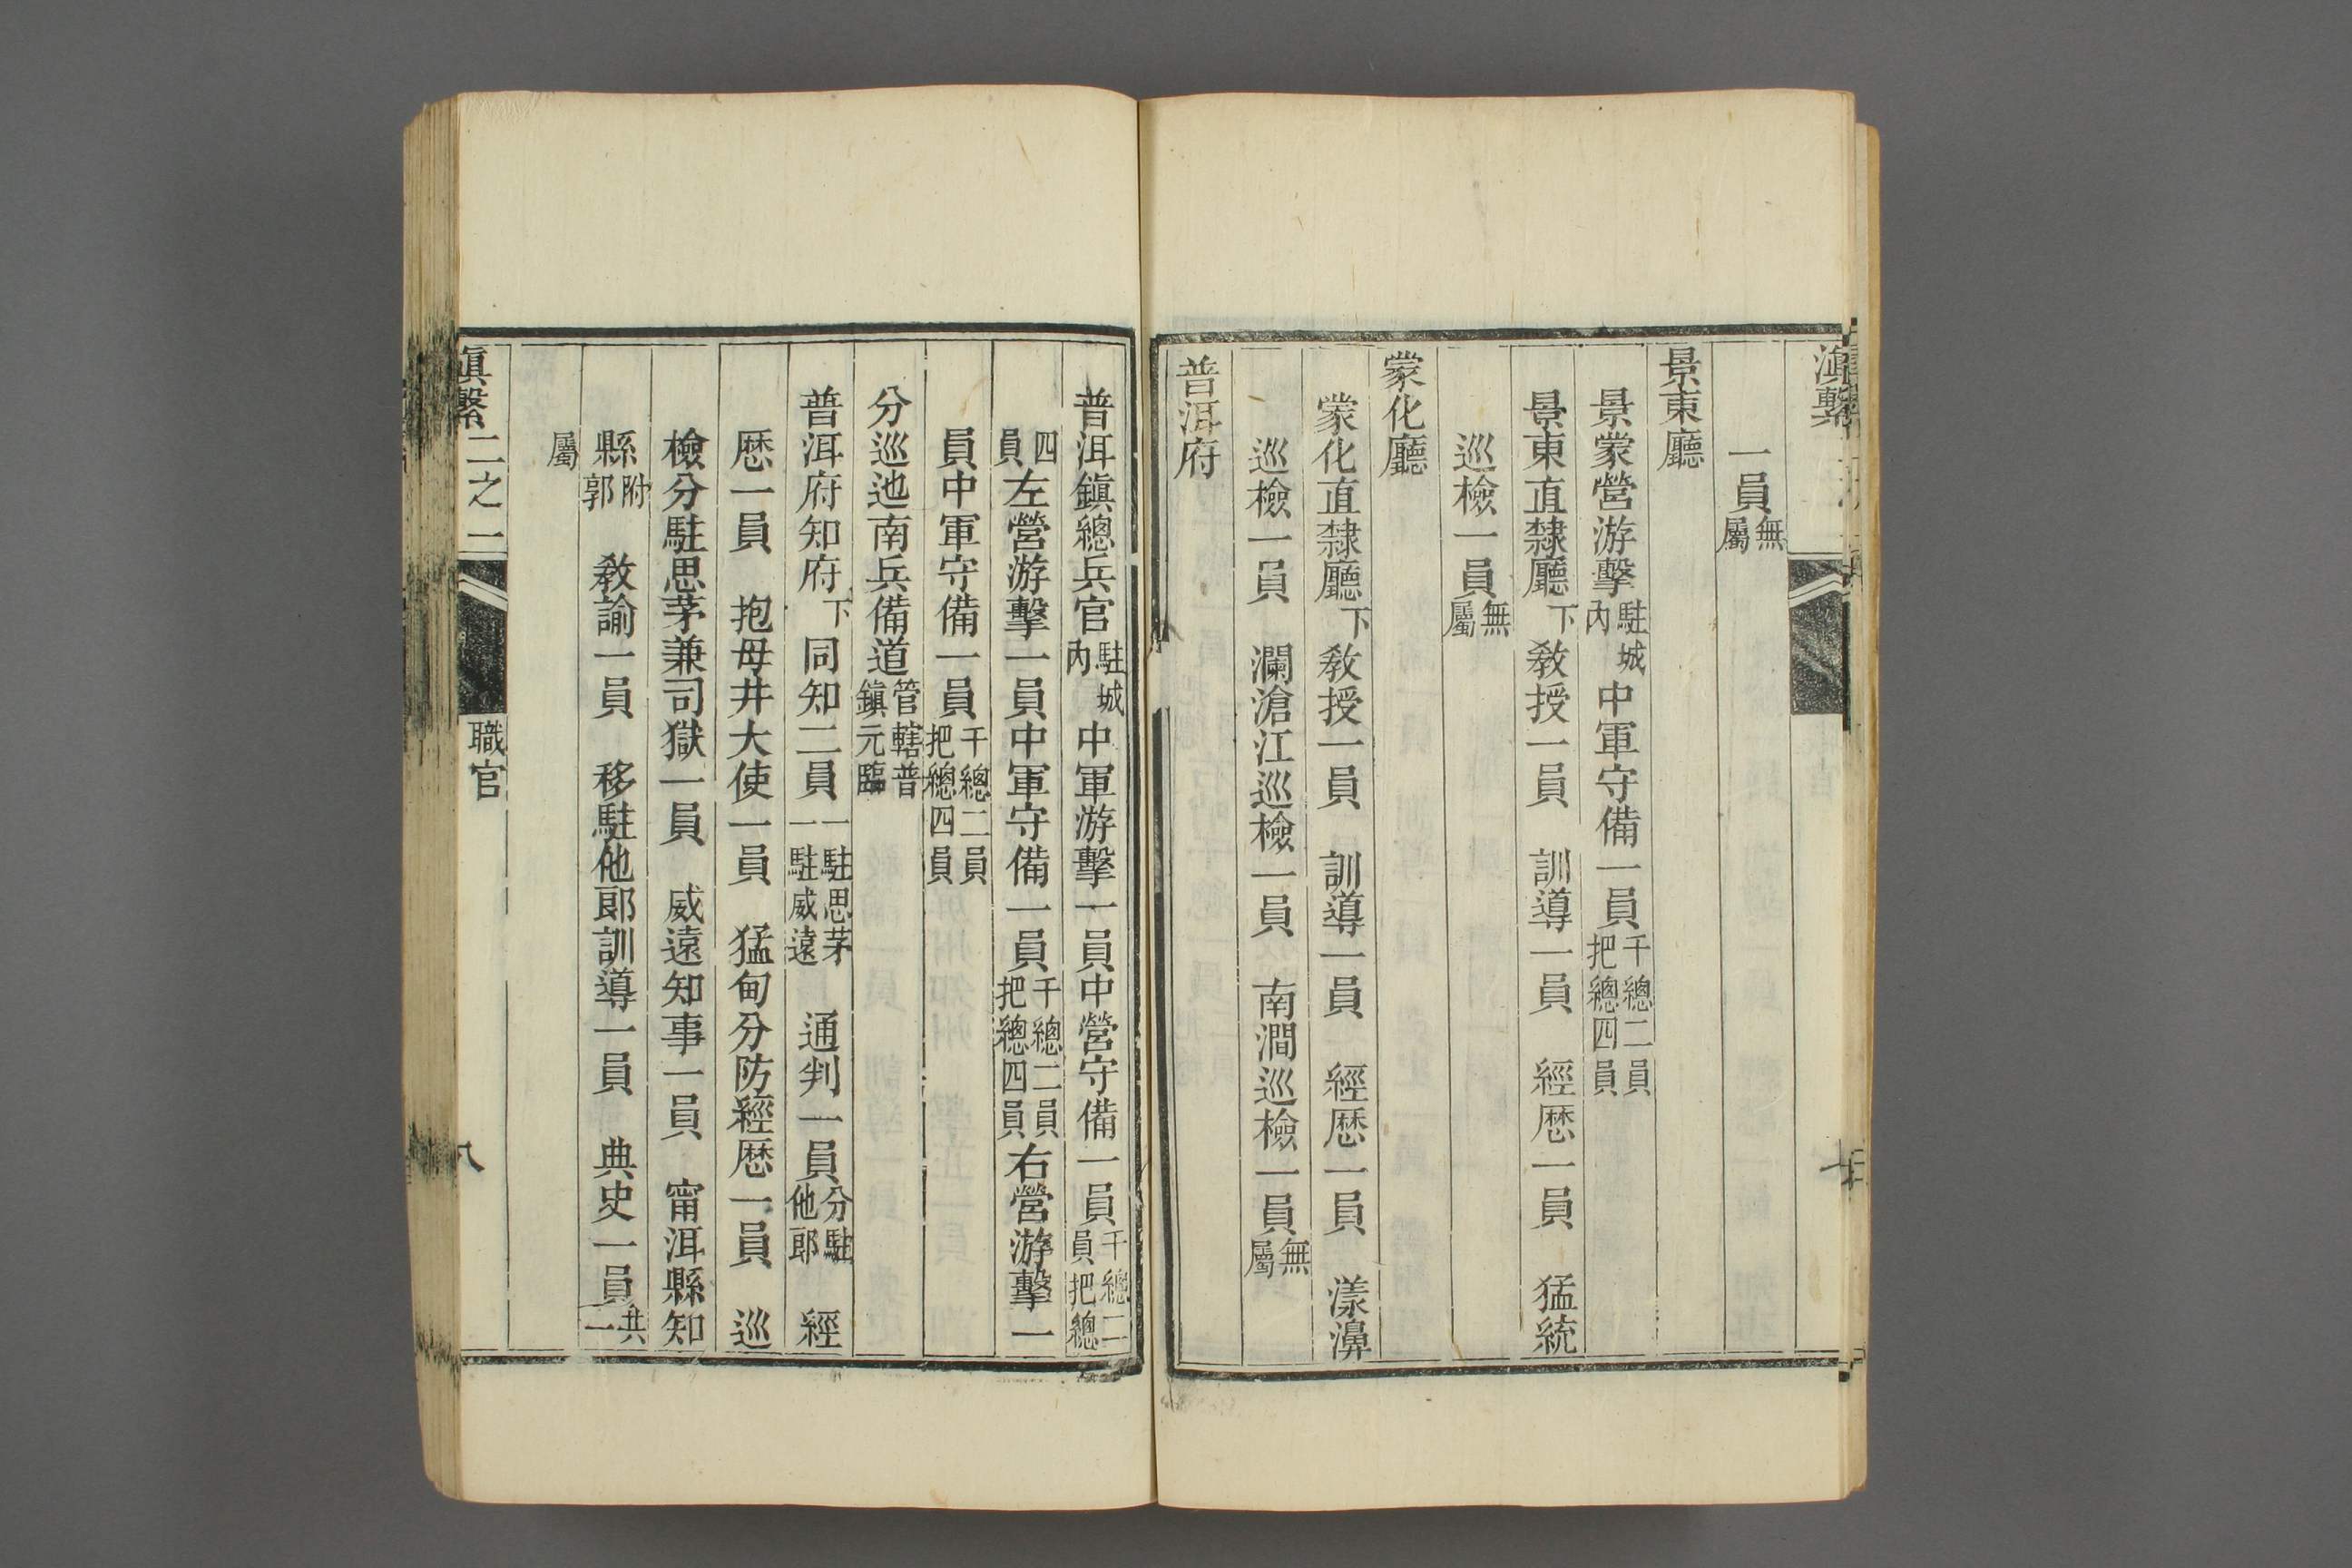 滇繫
一員無屬
景東廳
景蒙營游擊駐城內中軍守備一員千總二員把總四員
景東直隸廳下教授一員 訓導一員 經歷一員 猛統
巡檢一員無屬
蒙化廳
蒙化直隸廳下教授一員 訓導一員 經歷一員 漾濞
巡檢一員 瀾滄江巡檢一員 南澗巡檢一員無屬
普洱府
普洱鎮總兵官駐城內中軍游擊一員中營守備一員千總二員把總
四員左營游擊一員中軍守備一員千總二員把總四員右營游擊一
員中軍守備一員千總二員把總四員
分巡迆南兵備道管轄普鎮元臨
普洱府知府下同知二員一駐思茅一駐威遠 通判一員分駐他郎 經
歷一員 抱母井大使一員 猛甸分防經歷一員 巡
檢分駐思茅兼司獄一員 威遠知事一員 甯洱縣知
縣附郭 教諭一員 移駐他郎訓導一員 典史一員共一
屬
滇繫二之二 職官 八